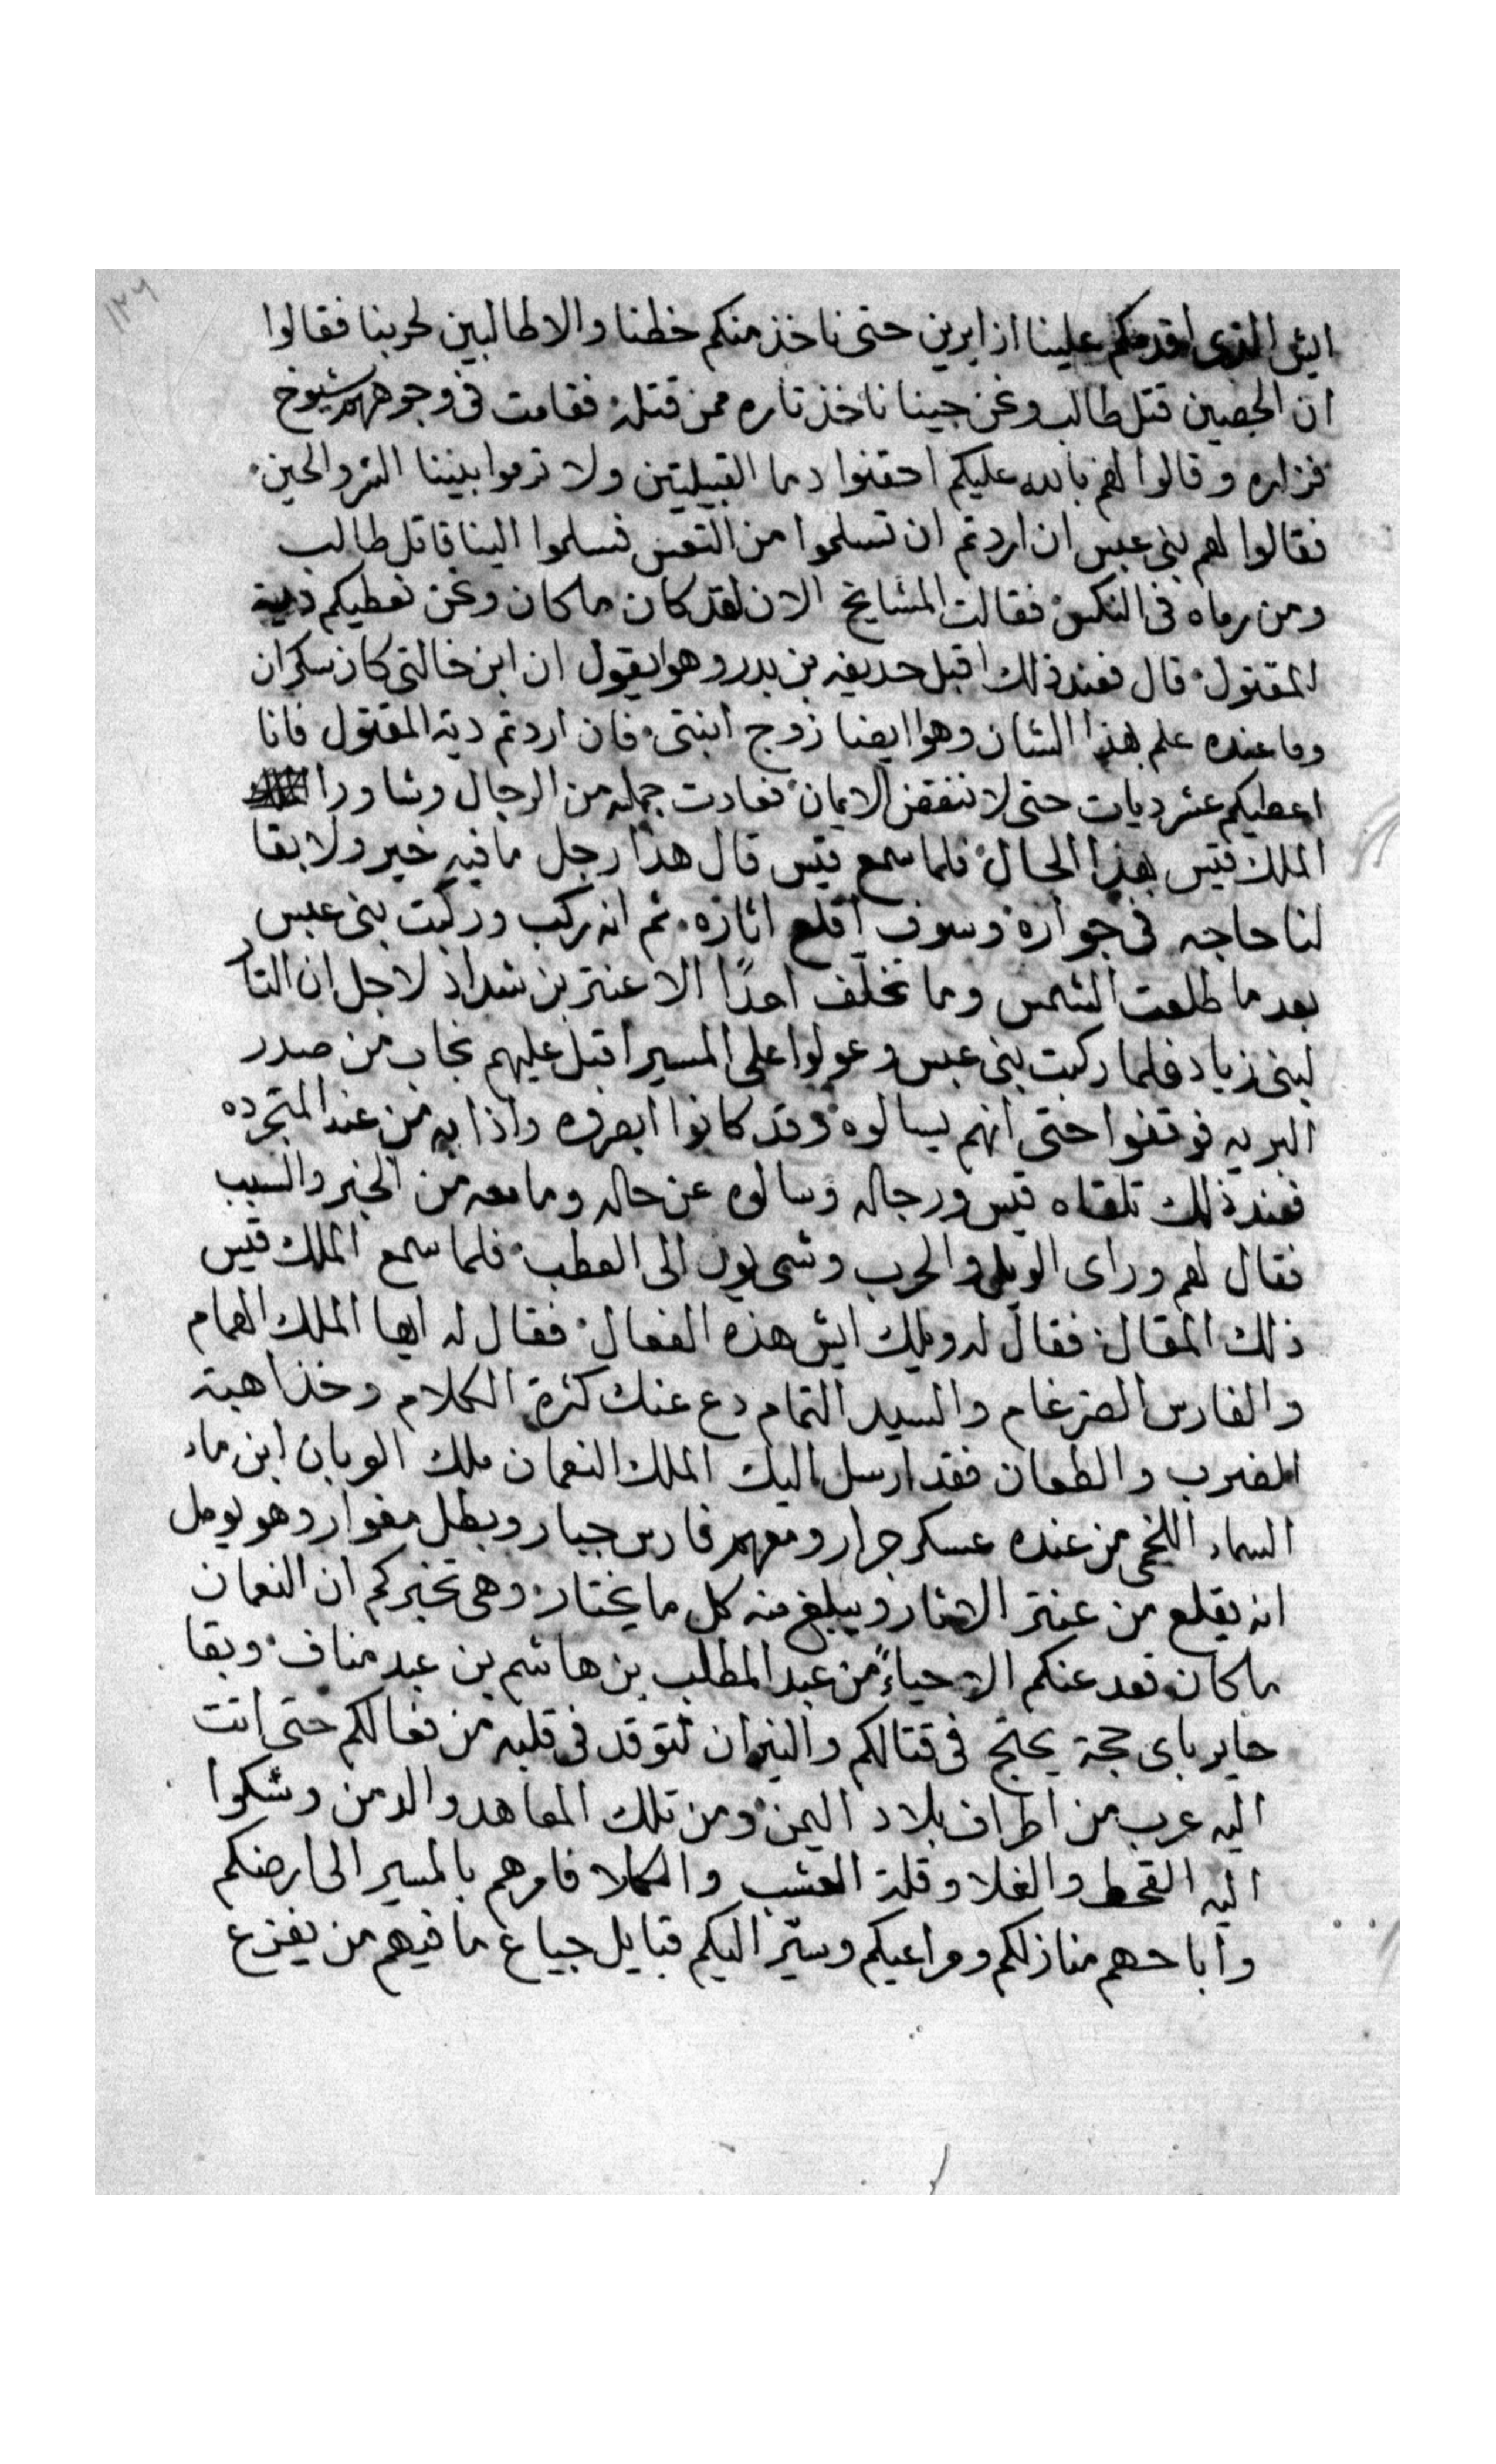 ١٢٦
ايش الذي اقدمكم علينا ازايرين حتى ناخذ منكم خطنا والا طالبين لحربنا فقالوا
ان الحصين قتل طالب ونحن جينا ناخذ تاره ممن قتله فقامت في وجوههم شيوخ
فزاره وقالوا لهم بالله عليكم احقنوا دما القبيلتين ولا ترموا بيننا الشر والحين
فقالوا لهم بني عبس ان اردتم ان تسلموا من التعس فسلموا الينا قاتل طالب
ومن رماه في النكس فقالت المشايخ الان لقد كان ما كان ونحن نعطيكم دية
المقتول قال فعند ذلك اقبل حديفه بن بدر وهو يقول ان ابن خالتي كان سكران
وما عنده علم بهذا الشان وهو ايضا زوج ابنتي فان اردتم دية المقتول فانا
اعطيكم عشر ديات حتى لا ننقض الايمان فعادت جمله من الرجال وشاورا
الملك قيس بهذا الحال فلما سمع قيس قال هذا رجل ما فيه خير ولا بقا
لنا حاجه في جواره وسوف اقلع اثاره ثم انه ركب وركبت بني عبس
بعد ما طلعت الشمس وما تخلف احدًا الا عنتر بن شداد لاجل ان التار
لبني زياد فلما ركبت بني عبس وعولوا على المسير اقبل عليهم نجاب من صدر
البريه فوقفوا حتى انهم يسالوه وقد كانوا ابعرفه واذا به من عند المتجرده
فعند ذلك تلقاه قيس ورجاله وسالوه عن حاله وما معه من الخبر والسبب
فقال لهم وراى الويل والحرب وشى يول الى العطب فلما سمع الملك قيس
ذلك المقال فقال له ويلك ايش هذه الفعال فقال له ايها الملك الهمام
والفارس الضرغام والسيد التمام دع عنك كثرة الكلام وخذ اهبة
الضرب والطعان فقد ارسل اليك الملك النعمان ملك العربان ابن ماء
السماء اللخمى من عنده عسكر جرار ومعهم فارس جبار وبطل مغوار وهو يومل
انه يقلع من عنتر الاثار ويبلغ منه كل ما يختار وهي تخبركم ان النعمان
ما كان قعد عنكم الا حياءً من عبد المطلب بن هاشم بن عبد مناف وبقا
حاير باى حجة يحتج في قتالكم والنيران تتوقد في قلبه من فعالكم حتى اتت
اليه عرب من اطراف بلاد اليمن ومن تلك المعاهد والدمن وشكوا
اليه القحط والغلا وقلة العشب والكلا فامرهم بالمسير الى ارضكم
واباحهم منازلكم ومراعيكم وسيّر اليكم قبايل جياع ما فيهم من يفزع